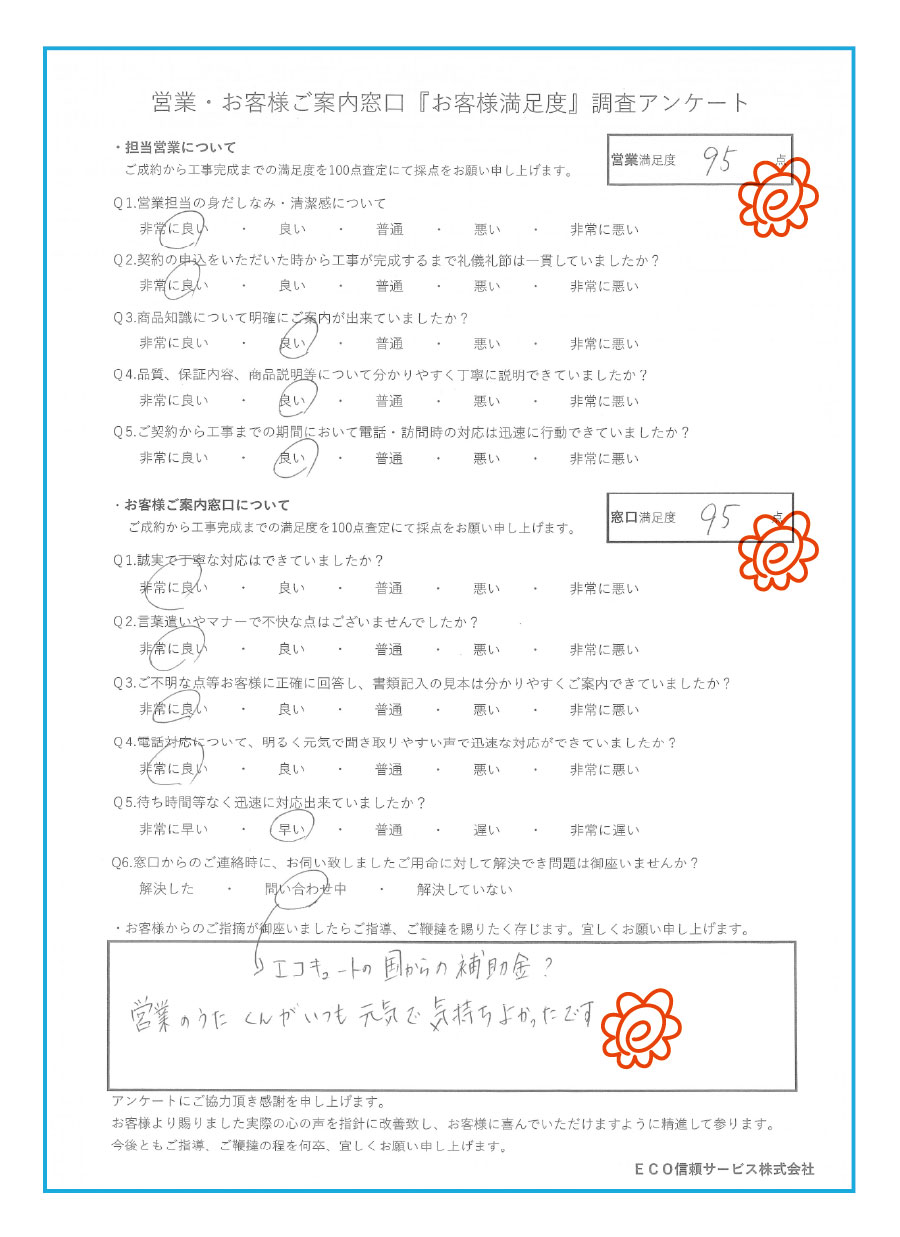 営業・お客様ご案内窓口『お客様満足度』調査アンケート
・担当営業について
ご成約から工事完成までの満足度を100点査定にて採点をお願い申し上げます。
営業満足度 95 点
Q1.営業担当の身だしなみ・清潔感について
非常に良い ・ 良い ・ 普通 ・ 悪い ・ 非常に悪い
Q2.契約の申込をいただいた時から工事が完成するまで礼儀礼節は一貫していましたか？
非常に良い ・ 良い ・ 普通 ・ 悪い ・ 非常に悪い
Q3.商品知識について明確にご案内が出来ていましたか？
非常に良い ・ 良い ・ 普通 ・ 悪い ・ 非常に悪い
Q4.品質、保証内容、商品説明等について分かりやすく丁寧に説明できていましたか？
非常に良い ・ 良い ・ 普通 ・ 悪い ・ 非常に悪い
Q5.ご契約から工事までの期間において電話・訪問時の対応は迅速に行動できていましたか？
非常に良い ・ 良い ・ 普通 ・ 悪い ・ 非常に悪い
・お客様ご案内窓口について
ご成約から工事完成までの満足度を100点査定にて採点をお願い申し上げます。
窓口満足度 95 点
Q1.誠実で丁寧な対応はできていましたか？
非常に良い ・ 良い ・ 普通 ・ 悪い ・ 非常に悪い
Q2.言葉遣いやマナーで不快な点はございませんでしたか？
非常に良い ・ 良い ・ 普通 ・ 悪い ・ 非常に悪い
Q3.ご不明な点等お客様に正確に回答し、書類記入の見本は分かりやすくご案内できていましたか？
非常に良い ・ 良い ・ 普通 ・ 悪い ・ 非常に悪い
Q4.電話対応について、明るく元気で聞き取りやすい声で迅速な対応ができていましたか？
非常に良い ・ 良い ・ 普通 ・ 悪い ・ 非常に悪い
Q5.待ち時間等なく迅速に対応出来ていましたか？
非常に早い ・ 早い ・ 普通 ・ 遅い ・ 非常に遅い
Q6.窓口からのご連絡時に、お伺い致しましたご用命に対して解決でき問題は御座いませんか？
解決した ・ 問い合わせ中 ・ 解決していない
・お客様からのご指摘が御座いましたらご指導、ご鞭撻を賜りたく存じます。宜しくお願い申し上げます。
エコキュートの国からの補助金？
営業のうたくんがいつも元気で気持ちよかったです
アンケートにご協力頂き感謝を申し上げます。
お客様より賜りました実際の心の声を指針に改善致し、お客様に喜んでいただけますように精進して参ります。
今後ともご指導、ご鞭撻の程を何卒、宜しくお願い申し上げます。
ECO信頼サービス株式会社